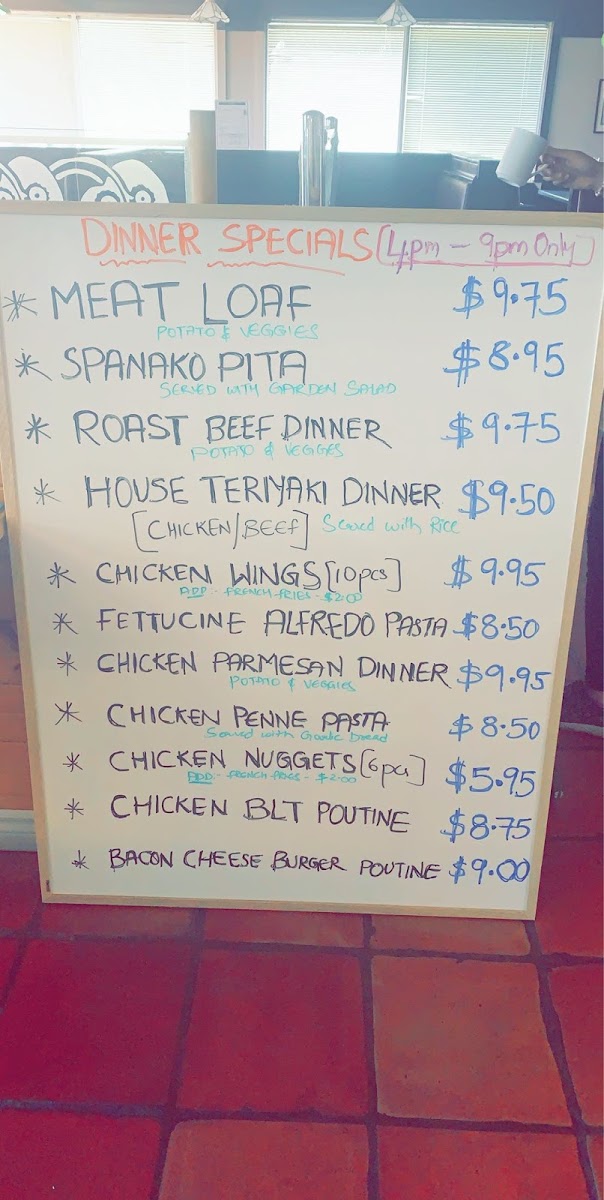 DINNER SPECIALS [4pm - 9pm Only]
* MEAT LOAF $9.75
POTATO & VEGGIES
* SPANAKO PITA $8.95
SERVED WITH GARDEN SALAD
* ROAST BEEF DINNER $9.75
POTATO & VEGGIES
* HOUSE TERIYAKI DINNER $9.50
[CHICKEN/BEEF] Served with Rice
* CHICKEN WINGS [10pcs] $9.95
ADD:- FRENCH-FRIES - $2.00
* FETTUCINE ALFREDO PASTA $8.50
* CHICKEN PARMESAN DINNER $9.95
POTATO & VEGGIES
* CHICKEN PENNE PASTA $8.50
Served with Garlic Bread
* CHICKEN NUGGETS [6pcs] $5.95
ADD:- FRENCH FRIES - $2.00
* CHICKEN BLT POUTINE $8.75
* BACON CHEESE BURGER POUTINE $9.00